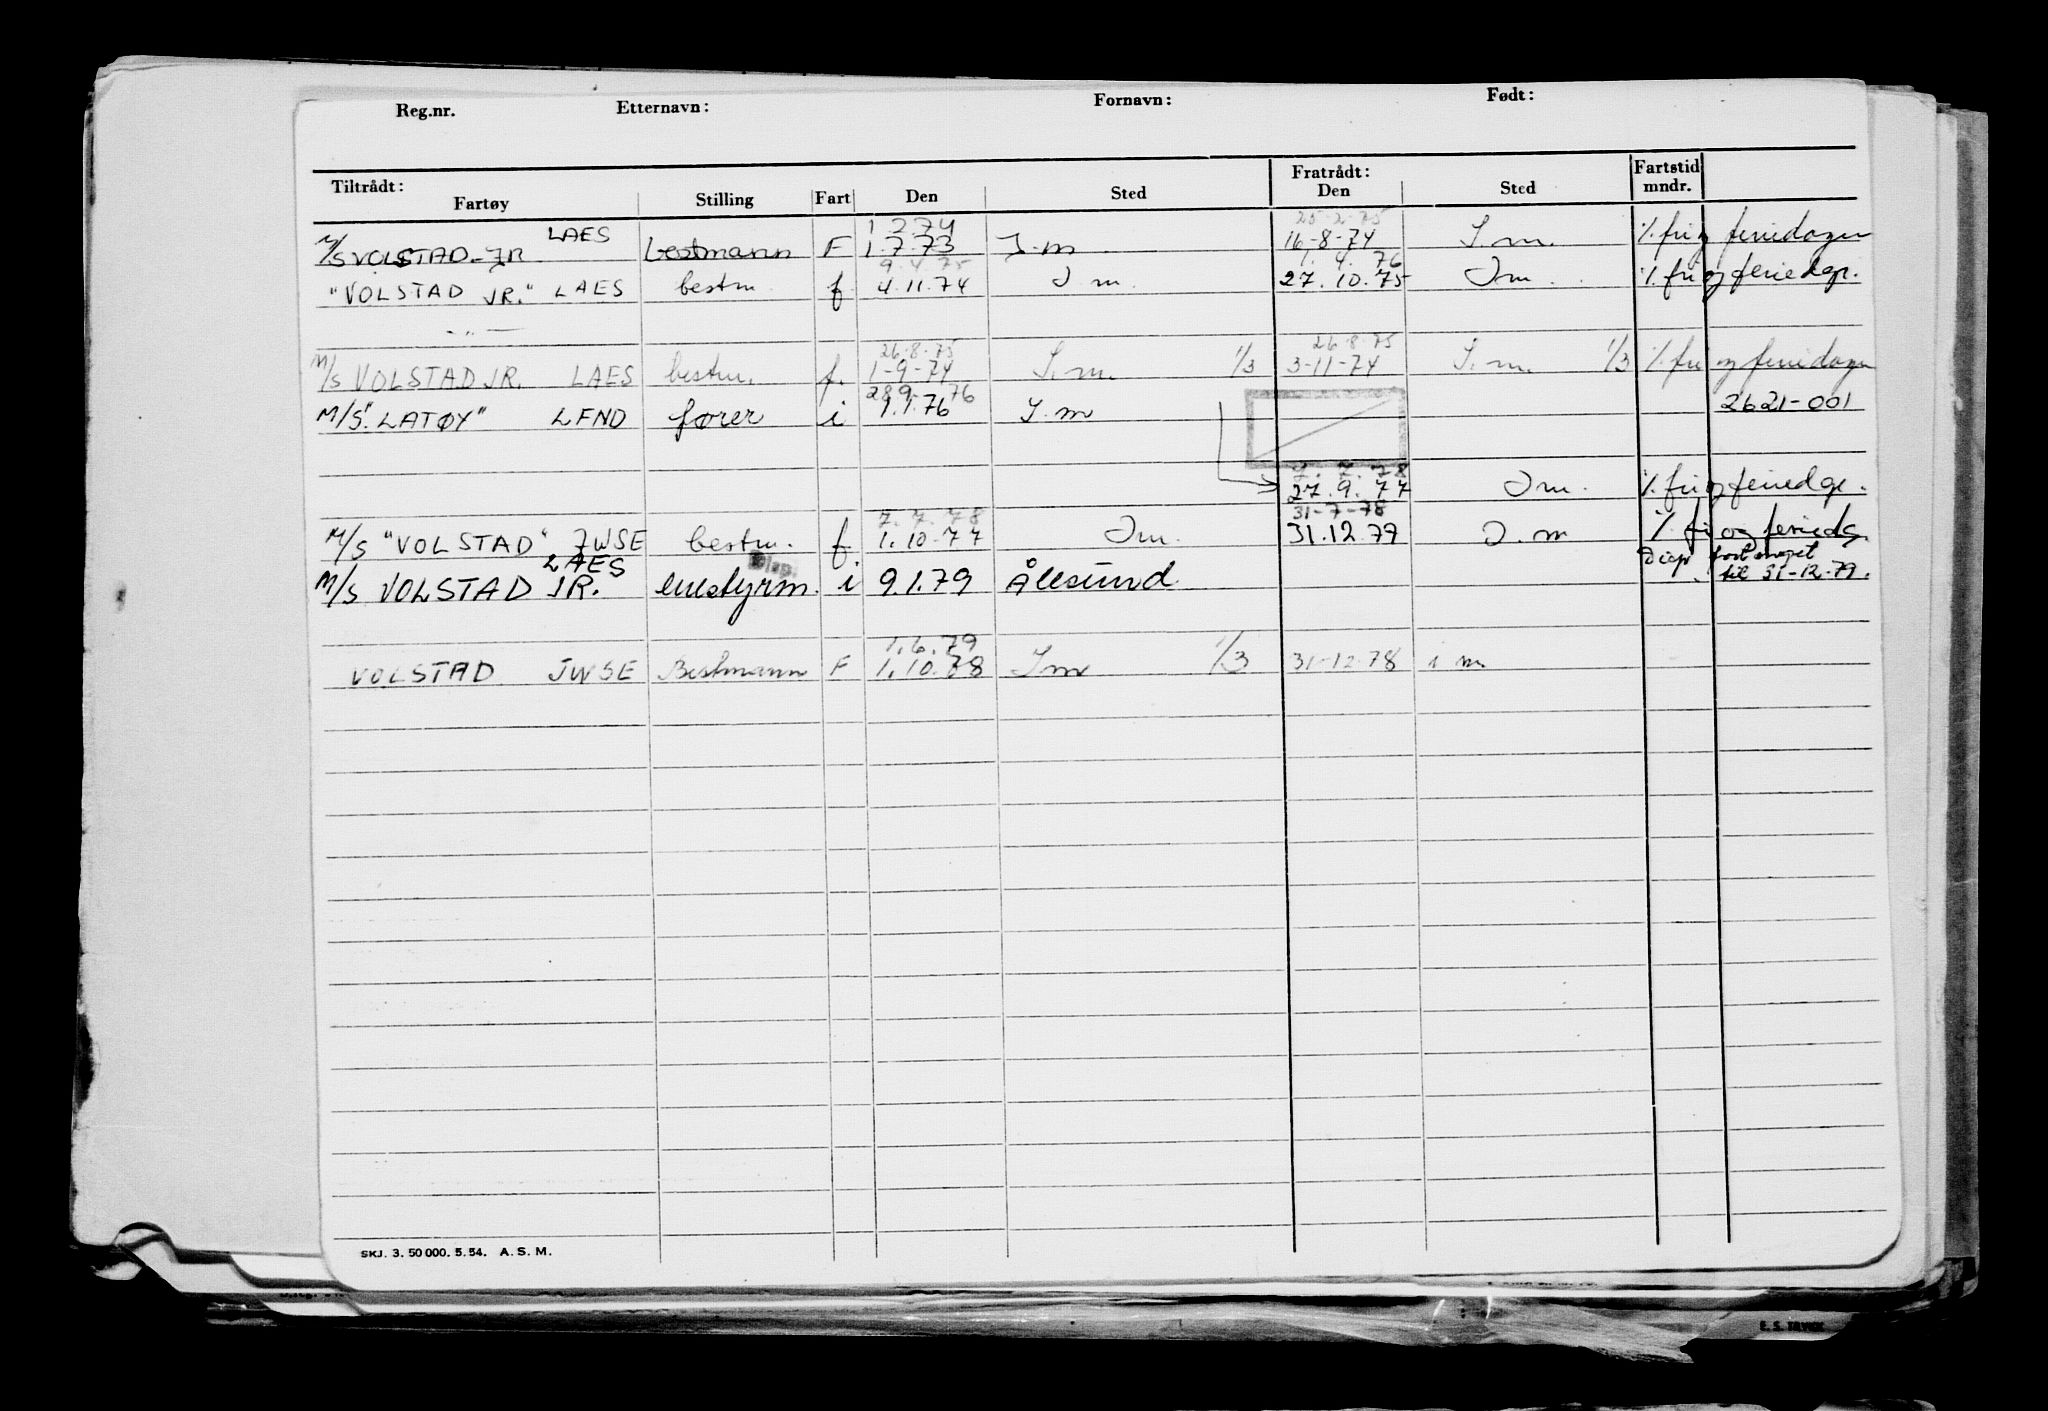 Reg.nr. Etternavn: Fornavn: Født:
Tiltrådt: Fratrådt: Fartstid
Fartøy Stilling Fart Den Sted Den Sted mndr.
1.2.74 25-2-75
M/S VOLSTAD JR LAES bestmann F 1.7.73 I.m 16-8-74 I.m. ./. fri og feriedager
9.4.75 1.4.76
"VOLSTAD JR." LAES bestm. f 4.11.74 I m. 27.10.75 Im. ./. fri og feriedgr.
-"-
26.8.75 26.8.75
M/S VOLSTAD JR. LAES bestm. f. 1-9-74 I.m. 1/3 3-11-74 I.m. 1/3 ./. fri og feriedager
28.9.76
M/S "LATØY" LFND fører i 1.1.76 I.m 2621-001
7.7.78
27.9.77 Im. ./. fri og feriedgr.
7.7.78 31-7-78
M/S "VOLSTAD" JWSE bestm. f 1.10.77 Im. 31.12.79 I.m ./. fri og ferieds
LAES Disp fort anget
M/S VOLSTAD JR. enestyrm. i 9.1.79 Ålesund til 31-12-79.
1.6.79
VOLSTAD JWSE Bestmann F 1.10.78 Im 1/3 31-12.78 i m
SKJ. 3. 50 000. 5. 54. A. S. M.